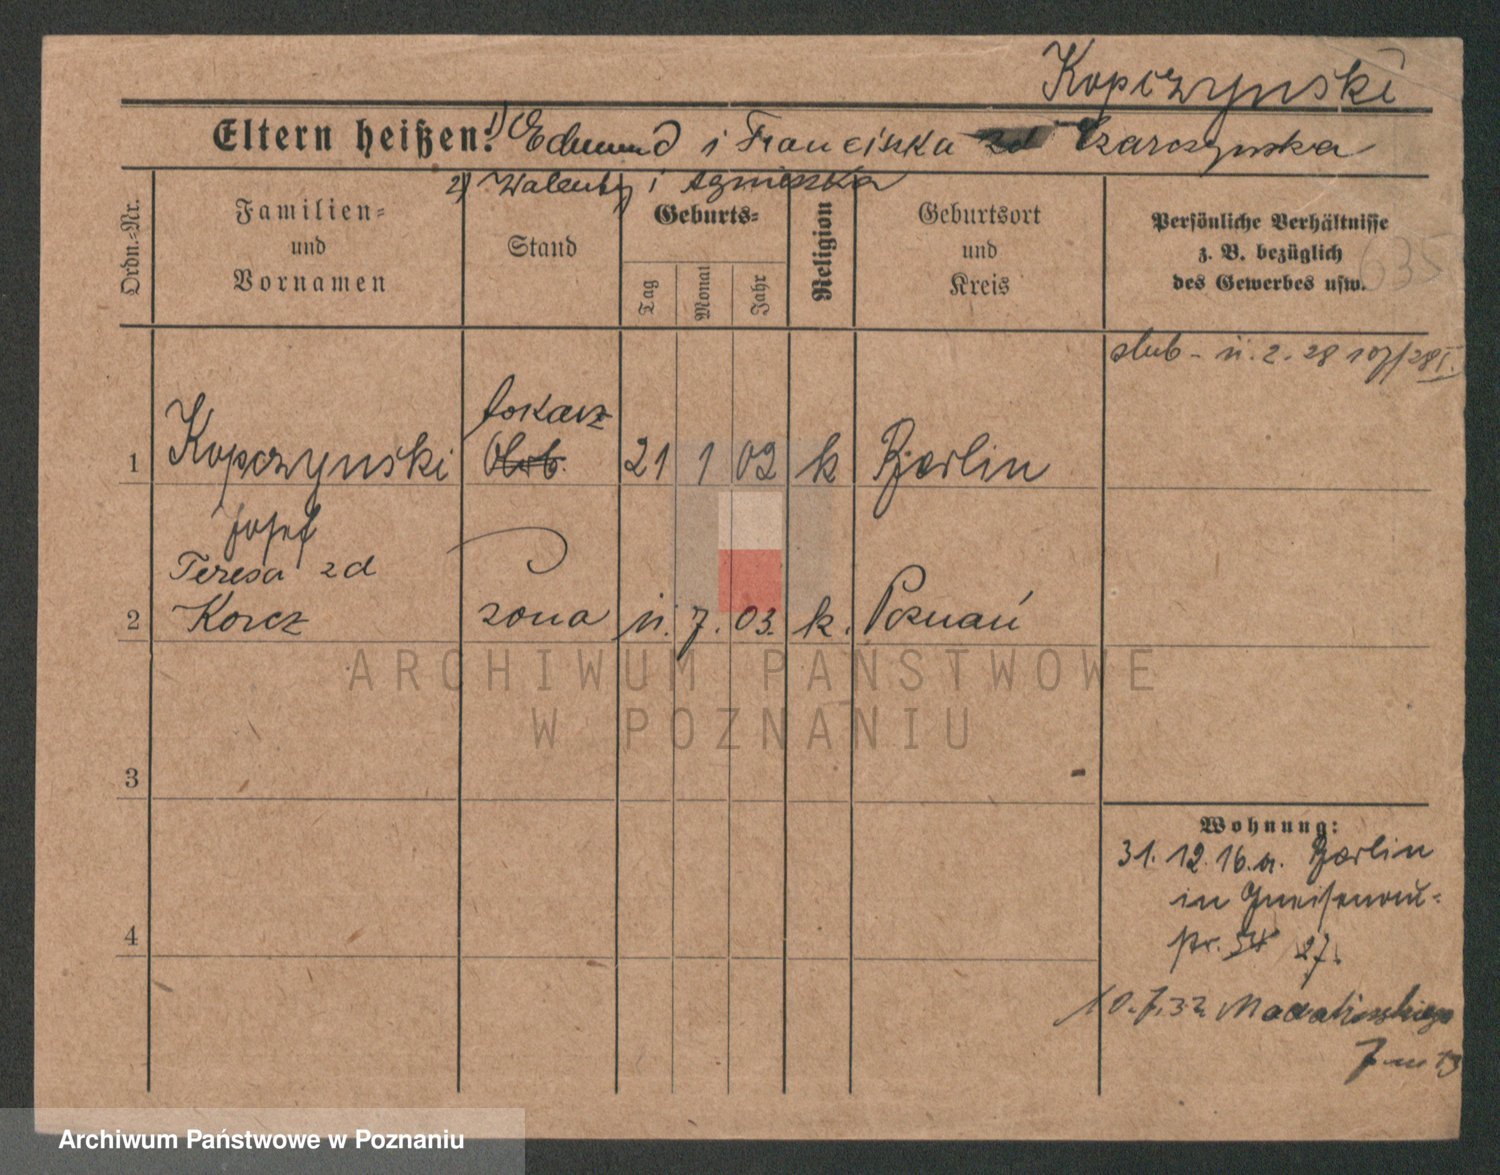 Kopczyński
Eltern heißen: 1) Edmund i Franciszka zd Czarczynska
2) Walenty i Agnieszka
Ordn.-Nr.
Familien- und Vornamen
Stand
Geburts-
Tag
Monat
Jahr
Religion
Geburtsort und Kreis
Persönliche Verhältnisse
z. B. bezüglich
des Gewerbes usw.
635
ślub - 11. 2. 28 107/28 I.
tokarz
1 Kopczyński Arb. 21 1 02 k Berlin
Josef
Teresa zd
2 Korcz żona 11. 7. 03. k. Poznań
3
4
Wohnung:
31. 12. 16. a. Berlin
in Gneisenau-
str. 54 27.
10. 7. 32
7 m 13
ARCHIWUM PAŃSTWOWE
W POZNANIU
Archiwum Państwowe w Poznaniu